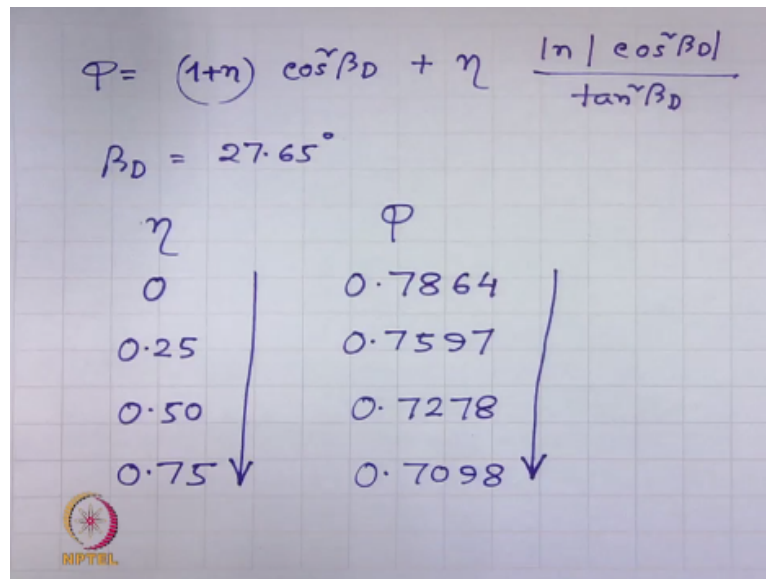 φ = (1+η) cos²βD + η ln | cos²βD| / tan²βD
βD = 27.65°
η φ
0 0.7864
0.25 0.7597
0.50 0.7278
0.75 0.7098
NPTEL